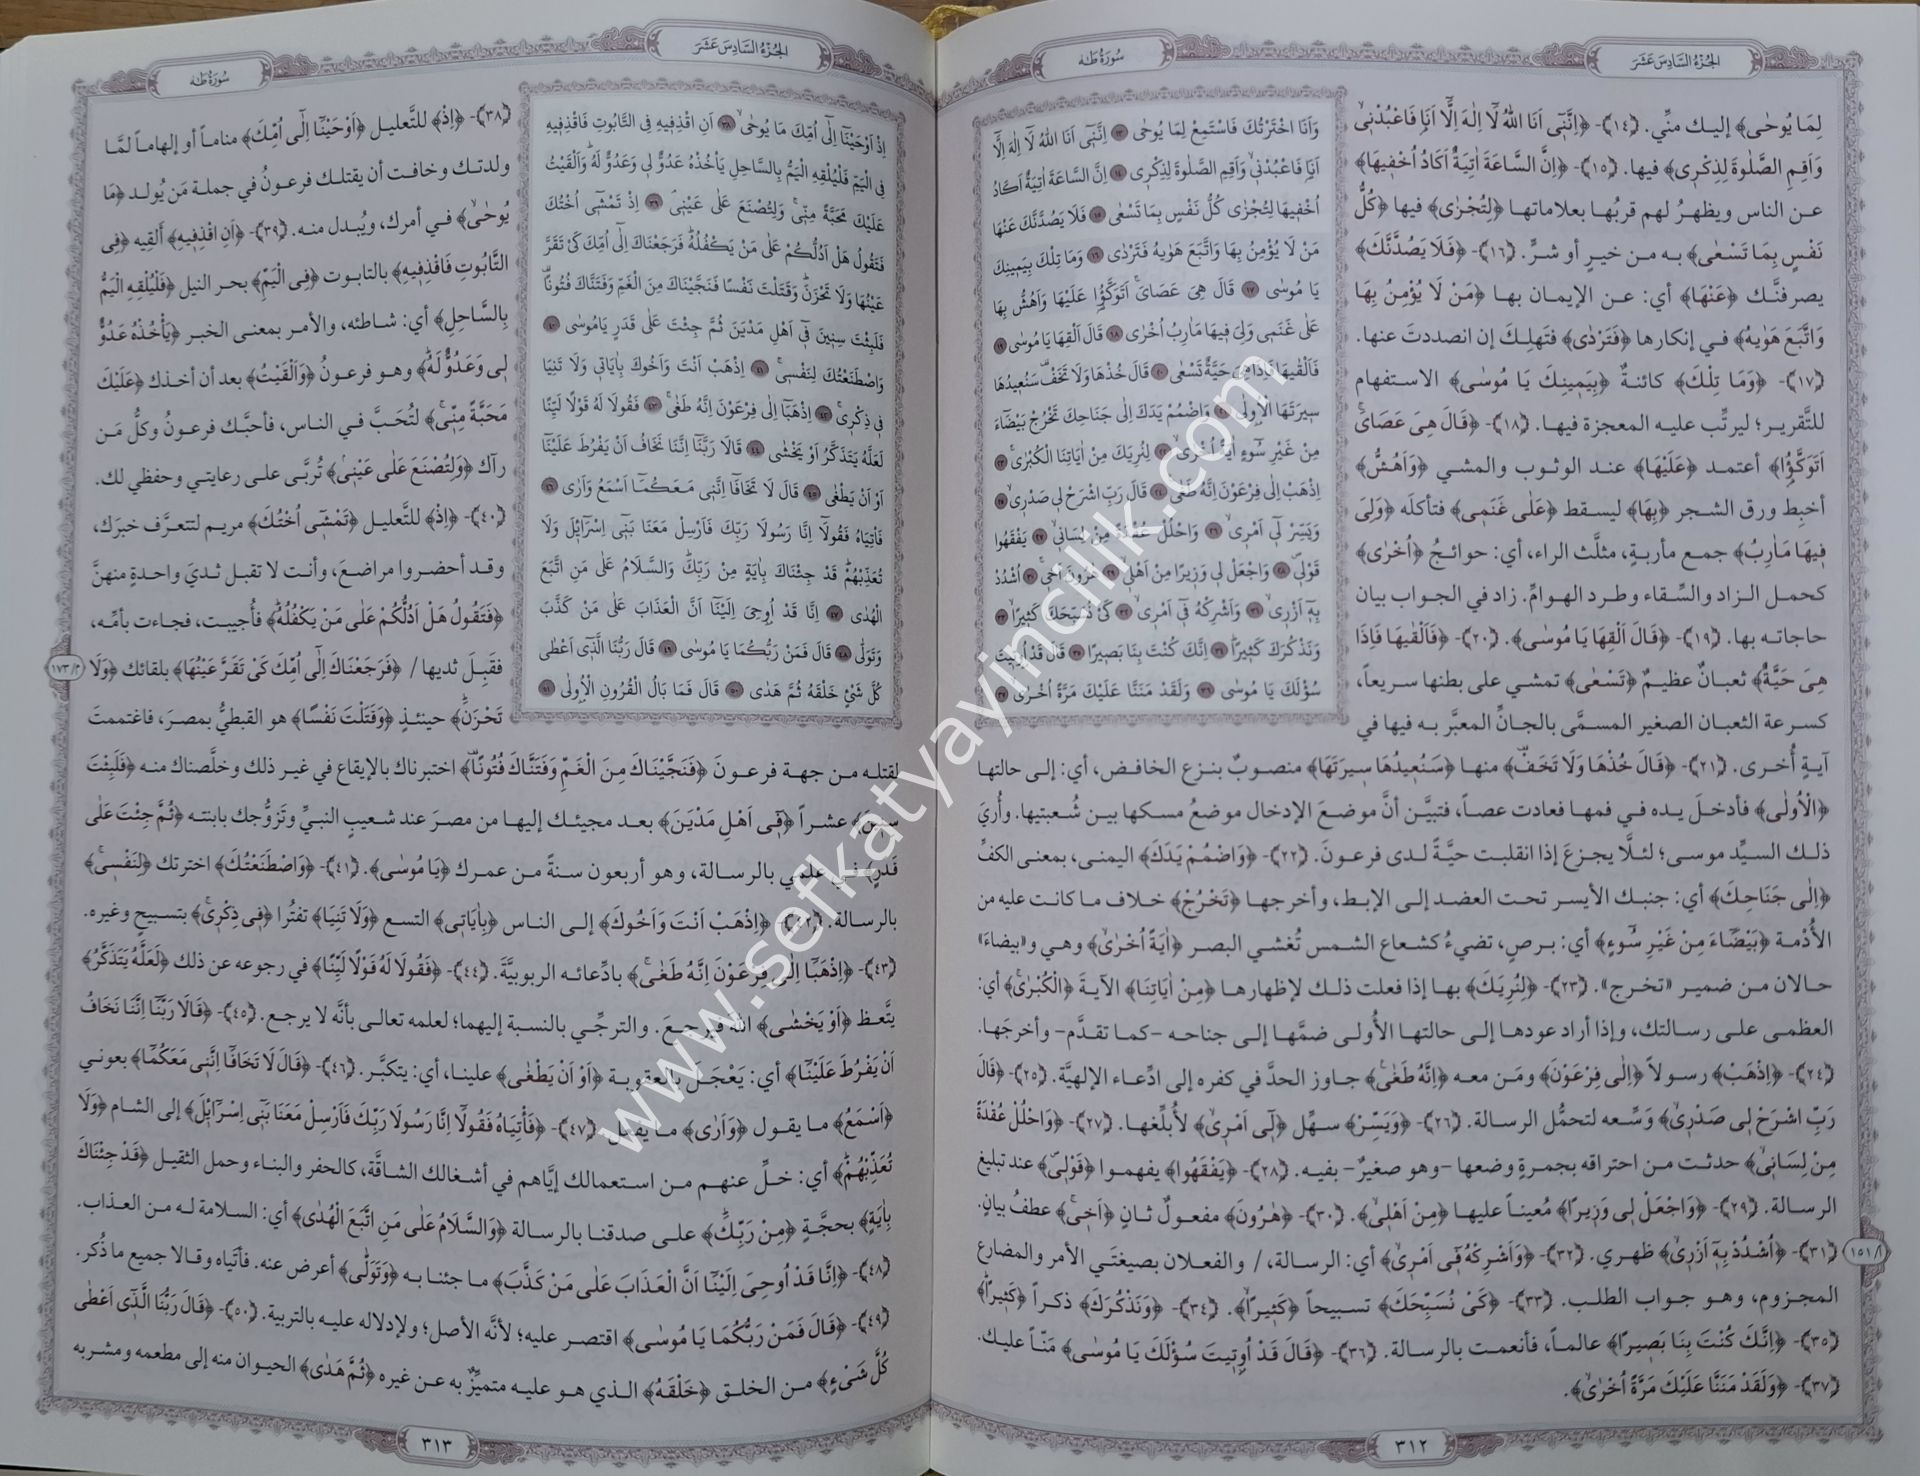 الجزء السادس عشر
سورة طه
وَاَنَا اخْتَرْتُكَ فَاسْتَمِعْ لِمَا يُوحٰى ﴿١٣﴾ اِنَّنٖٓي اَنَا اللّٰهُ لَٓا اِلٰهَ اِلَّٓا
اَنَا۬ فَاعْبُدْنٖيۙ وَاَقِمِ الصَّلٰوةَ لِذِكْرٖي ﴿١٤﴾ اِنَّ السَّاعَةَ اٰتِيَةٌ اَكَادُ
اُخْفٖيهَا لِتُجْزٰى كُلُّ نَفْسٍ بِمَا تَسْعٰى ﴿١٥﴾ فَلَا يَصُدَّنَّكَ عَنْهَا
مَنْ لَا يُؤْمِنُ بِهَا وَاتَّبَعَ هَوٰيهُ فَتَرْدٰى ﴿١٦﴾ وَمَا تِلْكَ بِيَمٖينِكَ
يَا مُوسٰى ﴿١٧﴾ قَالَ هِيَ عَصَايَۚ اَتَوَكَّؤُ۬ا عَلَيْهَا وَاَهُشُّ بِهَا
عَلٰى غَنَمٖي وَلِيَ فٖيهَا مَاٰرِبُ اُخْرٰى ﴿١٨﴾ قَالَ اَلْقِهَا يَا مُوسٰى ﴿١٩﴾
فَاَلْقٰيهَا فَاِذَا هِيَ حَيَّةٌ تَسْعٰى ﴿٢٠﴾ قَالَ خُذْهَا وَلَا تَخَفْ۠ سَنُعٖيدُهَا
سٖيرَتَهَا الْاُولٰى ﴿٢١﴾ وَاضْمُمْ يَدَكَ اِلٰى جَنَاحِكَ تَخْرُجْ بَيْضَٓاءَ
مِنْ غَيْرِ سُٓوءٍ اٰيَةً اُخْرٰىۙ ﴿٢٢﴾ لِنُرِيَكَ مِنْ اٰيَاتِنَا الْكُبْرٰىۚ ﴿٢٣﴾
اِذْهَبْ اِلٰى فِرْعَوْنَ اِنَّهُ طَغٰى ﴿٢٤﴾ قَالَ رَبِّ اشْرَحْ لٖي صَدْرٖيۙ ﴿٢٥﴾
وَيَسِّرْ لٖٓي اَمْرٖيۙ ﴿٢٦﴾ وَاحْلُلْ عُقْدَةً مِنْ لِسَانٖيۙ ﴿٢٧﴾ يَفْقَهُوا
قَوْلٖيۖ ﴿٢٨﴾ وَاجْعَلْ لٖي وَزٖيرًا مِنْ اَهْلٖيۙ ﴿٢٩﴾ هٰرُونَ اَخٖيۚ ﴿٣٠﴾ اُشْدُدْ
بِهٖٓ اَزْرٖيۙ ﴿٣١﴾ وَاَشْرِكْهُ فٖٓي اَمْرٖيۙ ﴿٣٢﴾ كَيْ نُسَبِّحَكَ كَثٖيرًاۙ ﴿٣٣﴾
وَنَذْكُرَكَ كَثٖيرًاۜ ﴿٣٤﴾ اِنَّكَ كُنْتَ بِنَا بَصٖيرًا ﴿٣٥﴾ قَالَ قَدْ اُوتٖيتَ
سُؤْلَكَ يَا مُوسٰى ﴿٣٦﴾ وَلَقَدْ مَنَنَّا عَلَيْكَ مَرَّةً اُخْرٰىۙ ﴿٣٧﴾
لِمَا يُوحٰى﴾ إليك منِّي. (١٤)- ﴿اِنَّنٖٓي اَنَا اللّٰهُ لَٓا اِلٰهَ اِلَّٓا اَنَا۬ فَاعْبُدْنٖيۙ
وَاَقِمِ الصَّلٰوةَ لِذِكْرٖي﴾ فيها. (١٥)- ﴿اِنَّ السَّاعَةَ اٰتِيَةٌ اَكَادُ اُخْفٖيهَا﴾
عن الناس ويظهرُ لهم قربُها بعلاماتها ﴿لِتُجْزٰى﴾ فيها ﴿كُلُّ
نَفْسٍ بِمَا تَسْعٰى﴾ به من خيرٍ أو شرٍّ. (١٦)- ﴿فَلَا يَصُدَّنَّكَ﴾
يصرفنَّك ﴿عَنْهَا﴾ أي: عن الإيمان بها ﴿مَنْ لَا يُؤْمِنُ بِهَا
وَاتَّبَعَ هَوٰيهُ﴾ في إنكارها ﴿فَتَرْدٰى﴾ فتَهلِكَ إن انصددتَ عنها.
(١٧)- ﴿وَمَا تِلْكَ﴾ كائنةٌ ﴿بِيَمٖينِكَ يَا مُوسٰى﴾ الاستفهام
للتَّقرير؛ ليرتِّب عليه المعجزة فيها. (١٨)- ﴿قَالَ هِيَ عَصَايَۚ
اَتَوَكَّؤُ۬ا﴾ أعتمد ﴿عَلَيْهَا﴾ عند الوثوب والمشي ﴿وَاَهُشُّ﴾
أخبِط ورق الشجر ﴿بِهَا﴾ ليسقط ﴿عَلٰى غَنَمٖي﴾ فتأكلَه ﴿وَلِيَ
فٖيهَا مَاٰرِبُ﴾ جمع مأربة، مثلَّث الراء، أي: حوائجُ ﴿اُخْرٰى﴾
كحمل الزاد والسِّقاء وطرد الهوامِّ. زاد في الجواب بيان
حاجاته بها. (١٩)- ﴿قَالَ اَلْقِهَا يَا مُوسٰى﴾. (٢٠)- ﴿فَاَلْقٰيهَا فَاِذَا
هِيَ حَيَّةٌ﴾ ثعبانٌ عظيمٌ ﴿تَسْعٰى﴾ تمشي على بطنها سريعاً،
كسرعة الثعبان الصغير المسمَّى بالجانِّ المعبَّر به فيها في
آيةٍ أُخرى. (٢١)- ﴿قَالَ خُذْهَا وَلَا تَخَفْ۠﴾ منها ﴿سَنُعٖيدُهَا سٖيرَتَهَا﴾ منصوبٌ بنزع الخافض، أي: إلى حالتها
﴿الْاُولٰى﴾ فأدخلَ يده في فمها فعادت عصاً، فتبيَّن أنَّ موضعَ الإدخال موضعُ مسكها بين شُعبتيها. وأُريَ
ذلك السيِّد موسى؛ لئلَّا يجزعَ إذا انقلبت حيَّةً لدى فرعونَ. (٢٢)- ﴿وَاضْمُمْ يَدَكَ﴾ اليمنى، بمعنى الكفِّ
﴿اِلٰى جَنَاحِكَ﴾ أي: جنبك الأيسر تحت العضد إلى الإبط، وأخرجها ﴿تَخْرُجْ﴾ خلاف ما كانت عليه من
الأُدْمة ﴿بَيْضَٓاءَ مِنْ غَيْرِ سُٓوءٍ﴾ أي: برصٍ، تضيءُ كشعاع الشمس تُغشي البصر ﴿اٰيَةً اُخْرٰىۙ﴾ وهي و«بيضاءَ»
حالان من ضمير «تخرج». (٢٣)- ﴿لِنُرِيَكَ﴾ بها إذا فعلت ذلك لإظهارها ﴿مِنْ اٰيَاتِنَا﴾ الآيةَ ﴿الْكُبْرٰىۚ﴾ أي:
العظمى على رسالتك، وإذا أراد عودها إلى حالتها الأُولى ضمَّها إلى جناحه -كما تقدَّم- وأخرجَها.
(٢٤)- ﴿اِذْهَبْ﴾ رسولاً ﴿اِلٰى فِرْعَوْنَ﴾ ومَن معه ﴿اِنَّهُ طَغٰىۚ﴾ جاوز الحدَّ في كفره إلى ادِّعاء الإلهيَّة. (٢٥)- ﴿قَالَ
رَبِّ اشْرَحْ لٖي صَدْرٖيۙ﴾ وَسِّعه لتحمُّل الرسالة. (٢٦)- ﴿وَيَسِّرْ﴾ سهِّل ﴿لٖٓي اَمْرٖيۙ﴾ لأُبلِّغها. (٢٧)- ﴿وَاحْلُلْ عُقْدَةً
مِنْ لِسَانٖيۙ﴾ حدثت من احتراقه بجمرةٍ وضعها -وهو صغيرٌ- بفيه. (٢٨)- ﴿يَفْقَهُوا﴾ يفهموا ﴿قَوْلٖيۖ﴾ عند تبليغ
الرسالة. (٢٩)- ﴿وَاجْعَلْ لٖي وَزٖيرًا﴾ مُعيناً عليها ﴿مِنْ اَهْلٖيۙ﴾. (٣٠)- ﴿هٰرُونَ﴾ مفعولٌ ثانٍ ﴿اَخٖيۚ﴾ عطفُ بيانٍ.
(٣١)- ﴿اُشْدُدْ بِهٖٓ اَزْرٖيۙ﴾ ظهري. (٣٢)- ﴿وَاَشْرِكْهُ فٖٓي اَمْرٖيۙ﴾ أي: الرسالة، / والفعلان بصيغتَي الأمر والمضارع
المجزوم، وهو جواب الطلب. (٣٣)- ﴿كَيْ نُسَبِّحَكَ﴾ تسبيحاً ﴿كَثٖيرًاۙ﴾. (٣٤)- ﴿وَنَذْكُرَكَ﴾ ذكراً ﴿كَثٖيرًاۜ﴾
(٣٥)- ﴿اِنَّكَ كُنْتَ بِنَا بَصٖيرًا﴾ عالماً، فأنعمت بالرسالة. (٣٦)- ﴿قَالَ قَدْ اُوتٖيتَ سُؤْلَكَ يَا مُوسٰى﴾ مَنّاً عليك.
(٣٧)- ﴿وَلَقَدْ مَنَنَّا عَلَيْكَ مَرَّةً اُخْرٰىۙ﴾.
١٥١/أ
٣١٢
الجزء السادس عشر
سورة طه
اِذْ اَوْحَيْنَٓا اِلٰٓى اُمِّكَ مَا يُوحٰىۙ ﴿٣٨﴾ اَنِ اقْذِفٖيهِ فِي التَّابُوتِ فَاقْذِفٖيهِ
فِي الْيَمِّ فَلْيُلْقِهِ الْيَمُّ بِالسَّاحِلِ يَأْخُذْهُ عَدُوٌّ لٖي وَعَدُوٌّ لَهُۜ وَاَلْقَيْتُ
عَلَيْكَ مَحَبَّةً مِنّٖيۚ وَلِتُصْنَعَ عَلٰى عَيْنٖيۢ ﴿٣٩﴾ اِذْ تَمْشٖٓي اُخْتُكَ
فَتَقُولُ هَلْ اَدُلُّكُمْ عَلٰى مَنْ يَكْفُلُهُۜ فَرَجَعْنَاكَ اِلٰٓى اُمِّكَ كَيْ تَقَرَّ
عَيْنُهَا وَلَا تَحْزَنَۜ وَقَتَلْتَ نَفْسًا فَنَجَّيْنَاكَ مِنَ الْغَمِّ وَفَتَنَّاكَ فُتُونًا۠
فَلَبِثْتَ سِنٖينَ فٖٓي اَهْلِ مَدْيَنَ ثُمَّ جِئْتَ عَلٰى قَدَرٍ يَامُوسٰى ﴿٤٠﴾
وَاصْطَنَعْتُكَ لِنَفْسٖيۚ ﴿٤١﴾ اِذْهَبْ اَنْتَ وَاَخُوكَ بِاٰيَاتٖي وَلَا تَنِيَا
فٖي ذِكْرٖيۚ ﴿٤٢﴾ اِذْهَبَٓا اِلٰى فِرْعَوْنَ اِنَّهُ طَغٰىۚ ﴿٤٣﴾ فَقُولَا لَهُ قَوْلًا لَيِّنًا
لَعَلَّهُ يَتَذَكَّرُ اَوْ يَخْشٰى ﴿٤٤﴾ قَالَا رَبَّنَٓا اِنَّنَا نَخَافُ اَنْ يَفْرُطَ عَلَيْنَٓا
اَوْ اَنْ يَطْغٰى ﴿٤٥﴾ قَالَ لَا تَخَافَٓا اِنَّنٖي مَعَكُمَٓا اَسْمَعُ وَاَرٰى ﴿٤٦﴾
فَأْتِيَاهُ فَقُولَٓا اِنَّا رَسُولَا رَبِّكَ فَاَرْسِلْ مَعَنَا بَنٖٓي اِسْرَٓائٖلَ وَلَا
تُعَذِّبْهُمْۜ قَدْ جِئْنَاكَ بِاٰيَةٍ مِنْ رَبِّكَۜ وَالسَّلَامُ عَلٰى مَنِ اتَّبَعَ
الْهُدٰى ﴿٤٧﴾ اِنَّا قَدْ اُوحِيَ اِلَيْنَٓا اَنَّ الْعَذَابَ عَلٰى مَنْ كَذَّبَ
وَتَوَلّٰى ﴿٤٨﴾ قَالَ فَمَنْ رَبُّكُمَا يَا مُوسٰى ﴿٤٩﴾ قَالَ رَبُّنَا الَّذٖٓي اَعْطٰى
كُلَّ شَيْءٍ خَلْقَهُ ثُمَّ هَدٰى ﴿٥٠﴾ قَالَ فَمَا بَالُ الْقُرُونِ الْاُولٰى ﴿٥١﴾
(٣٨)- ﴿اِذْ﴾ للتَّعليل ﴿اَوْحَيْنَٓا اِلٰٓى اُمِّكَ﴾ مناماً أو إلهاماً لمَّا
ولدتك وخافت أن يقتلك فرعونُ في جملة مَن يُولد ﴿مَا
يُوحٰىۙ﴾ في أمرك، ويُبدل منه. (٣٩)- ﴿اَنِ اقْذِفٖيهِ﴾ ألقِيه ﴿فِي
التَّابُوتِ فَاقْذِفٖيهِ﴾ بالتابوت ﴿فِي الْيَمِّ﴾ بحر النيل ﴿فَلْيُلْقِهِ الْيَمُّ
بِالسَّاحِلِ﴾ أي: شاطئه، والأمر بمعنى الخبر ﴿يَأْخُذْهُ عَدُوٌّ
لٖي وَعَدُوٌّ لَهُۜ﴾ وهو فرعونُ ﴿وَاَلْقَيْتُ﴾ بعد أن أخذك ﴿عَلَيْكَ
مَحَبَّةً مِنّٖيۚ﴾ لتُحَبَّ في الناس، فأحبَّك فرعونُ وكلُّ مَن
رآك ﴿وَلِتُصْنَعَ عَلٰى عَيْنٖي﴾ تُربَّى على رعايتي وحفظي لك.
(٤٠)- ﴿اِذْ﴾ للتَّعليل ﴿تَمْشٖٓي اُخْتُكَ﴾ مريم لتتعرَّف خبرَك،
وقد أحضروا مراضعَ، وأنت لا تقبل ثديَ واحدةٍ منهنَّ
﴿فَتَقُولُ هَلْ اَدُلُّكُمْ عَلٰى مَنْ يَكْفُلُهُۜ﴾ فأُجيبت، فجاءت بأمِّه،
فقَبِلَ ثديها / ﴿فَرَجَعْنَاكَ اِلٰٓى اُمِّكَ كَيْ تَقَرَّ عَيْنُهَا﴾ بلقائك ﴿وَلَا
تَحْزَنَۜ﴾ حينئذٍ ﴿وَقَتَلْتَ نَفْسًا﴾ هو القبطيُّ بمصرَ، فاغتممتَ
لقتله من جهة فرعونَ ﴿فَنَجَّيْنَاكَ مِنَ الْغَمِّ وَفَتَنَّاكَ فُتُونًا۠﴾ اختبرناك بالإيقاع في غير ذلك وخلَّصناك منه ﴿فَلَبِثْتَ
سِنٖينَ﴾ عشراً ﴿فٖٓي اَهْلِ مَدْيَنَ﴾ بعد مجيئك إليها من مصرَ عند شعيبٍ النبيِّ وتَزوُّجك بابنته ﴿ثُمَّ جِئْتَ عَلٰى
قَدَرٍ﴾ في علمي بالرسالة، وهو أربعون سنةً من عمرك ﴿يَا مُوسٰى﴾. (٤١)- ﴿وَاصْطَنَعْتُكَ﴾ اخترتك ﴿لِنَفْسٖيۚ﴾
بالرسالة. (٤٢)- ﴿اِذْهَبْ اَنْتَ وَاَخُوكَ﴾ إلى الناس ﴿بِاٰيَاتٖي﴾ التسع ﴿وَلَا تَنِيَا﴾ تفتُرا ﴿فٖي ذِكْرٖيۚ﴾ بتسبيحٍ وغيره.
(٤٣)- ﴿اِذْهَبَٓا اِلٰى فِرْعَوْنَ اِنَّهُ طَغٰىۚ﴾ بادِّعائه الربوبيَّة. (٤٤)- ﴿فَقُولَا لَهُ قَوْلًا لَيِّنًا﴾ في رجوعه عن ذلك ﴿لَعَلَّهُ يَتَذَكَّرُ﴾
يتَّعظ ﴿اَوْ يَخْشٰى﴾ اللهَ فيرجعَ. والترجِّي بالنسبة إليهما؛ لعلمه تعالى بأنَّه لا يرجع. (٤٥)- ﴿قَالَا رَبَّنَٓا اِنَّنَا نَخَافُ
اَنْ يَفْرُطَ عَلَيْنَٓا﴾ أي: يَعْجَل بالعقوبة ﴿اَوْ اَنْ يَطْغٰى﴾ علينا، أي: يتكبَّر. (٤٦)- ﴿قَالَ لَا تَخَافَٓا اِنَّنٖي مَعَكُمَٓا﴾ بعوني
﴿اَسْمَعُ﴾ ما يقول ﴿وَاَرٰى﴾ ما يفعل. (٤٧)- ﴿فَأْتِيَاهُ فَقُولَٓا اِنَّا رَسُولَا رَبِّكَ فَاَرْسِلْ مَعَنَا بَنٖٓي اِسْرَٓائٖلَ﴾ إلى الشام ﴿وَلَا
تُعَذِّبْهُمْۜ﴾ أي: خلِّ عنهم من استعمالك إيَّاهم في أشغالك الشاقَّة، كالحفر والبناء وحمل الثقيل ﴿قَدْ جِئْنَاكَ
بِاٰيَةٍ﴾ بحجَّةٍ ﴿مِنْ رَبِّكَۜ﴾ على صدقنا بالرسالة ﴿وَالسَّلَامُ عَلٰى مَنِ اتَّبَعَ الْهُدٰى﴾ أي: السلامة له من العذاب.
(٤٨)- ﴿اِنَّا قَدْ اُوحِيَ اِلَيْنَٓا اَنَّ الْعَذَابَ عَلٰى مَنْ كَذَّبَ﴾ ما جئنا به ﴿وَتَوَلّٰى﴾ أعرض عنه. فأتَياه وقالا جميع ما ذُكر.
(٤٩)- ﴿قَالَ فَمَنْ رَبُّكُمَا يَا مُوسٰى﴾ اقتصر عليه؛ لأنَّه الأصل؛ ولإدلاله عليه بالتربية. (٥٠)- ﴿قَالَ رَبُّنَا الَّذٖٓي اَعْطٰى
كُلَّ شَيْءٍ﴾ من الخلق ﴿خَلْقَهُ﴾ الذي هو عليه متميِّزٌ به عن غيره ﴿ثُمَّ هَدٰى﴾ الحيوان منه إلى مطعمه ومشربه
٣١٣
www.sefkatyayincilik.com